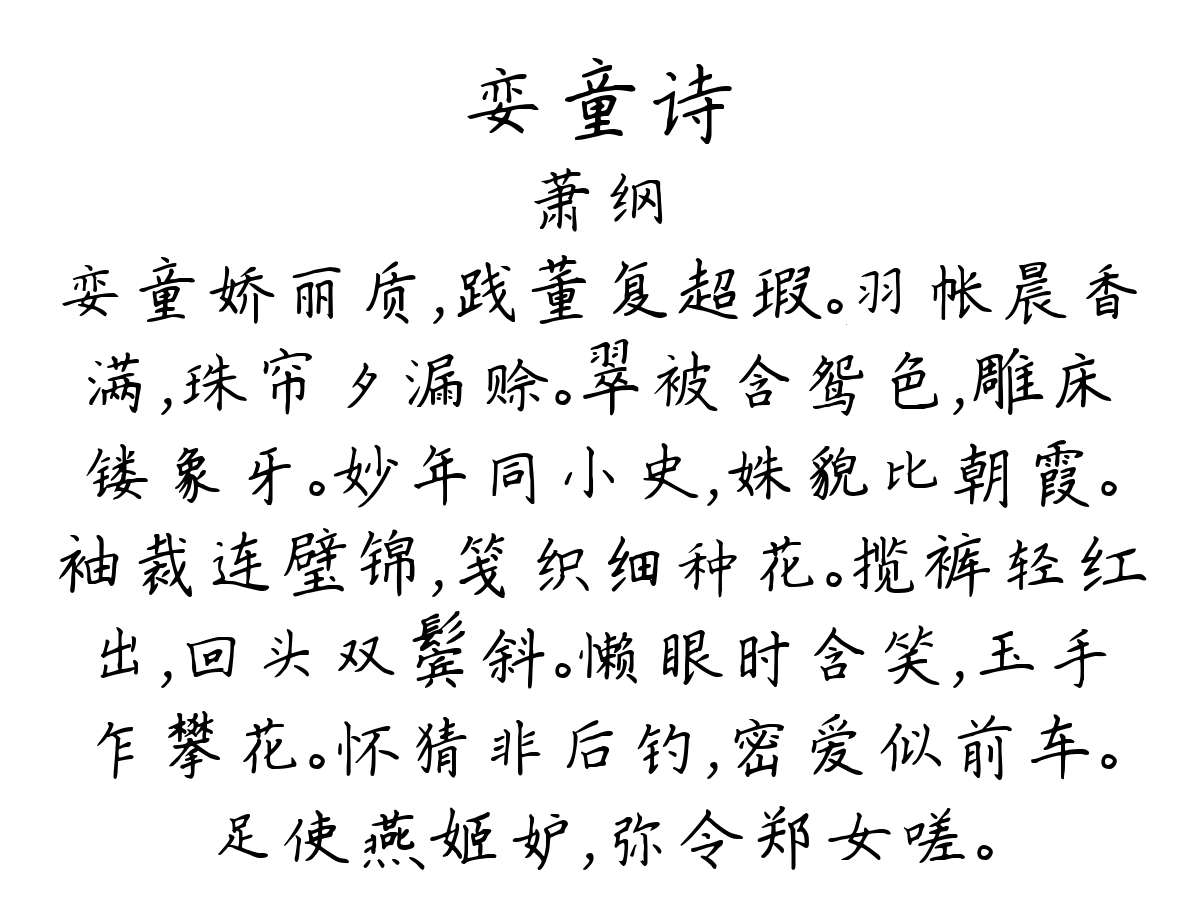 娈童诗
萧纲
娈童娇丽质,践董复超瑕。羽帐晨香
满,珠帘夕漏赊。翠被含鸳色,雕床
镂象牙。妙年同小史,姝貌比朝霞。
袖裁连璧锦,笺织细种花。揽裤轻红
出,回头双鬓斜。懒眼时含笑,玉手
乍攀花。怀猜非后钓,密爱似前车。
足使燕姬妒,弥令郑女嗟。